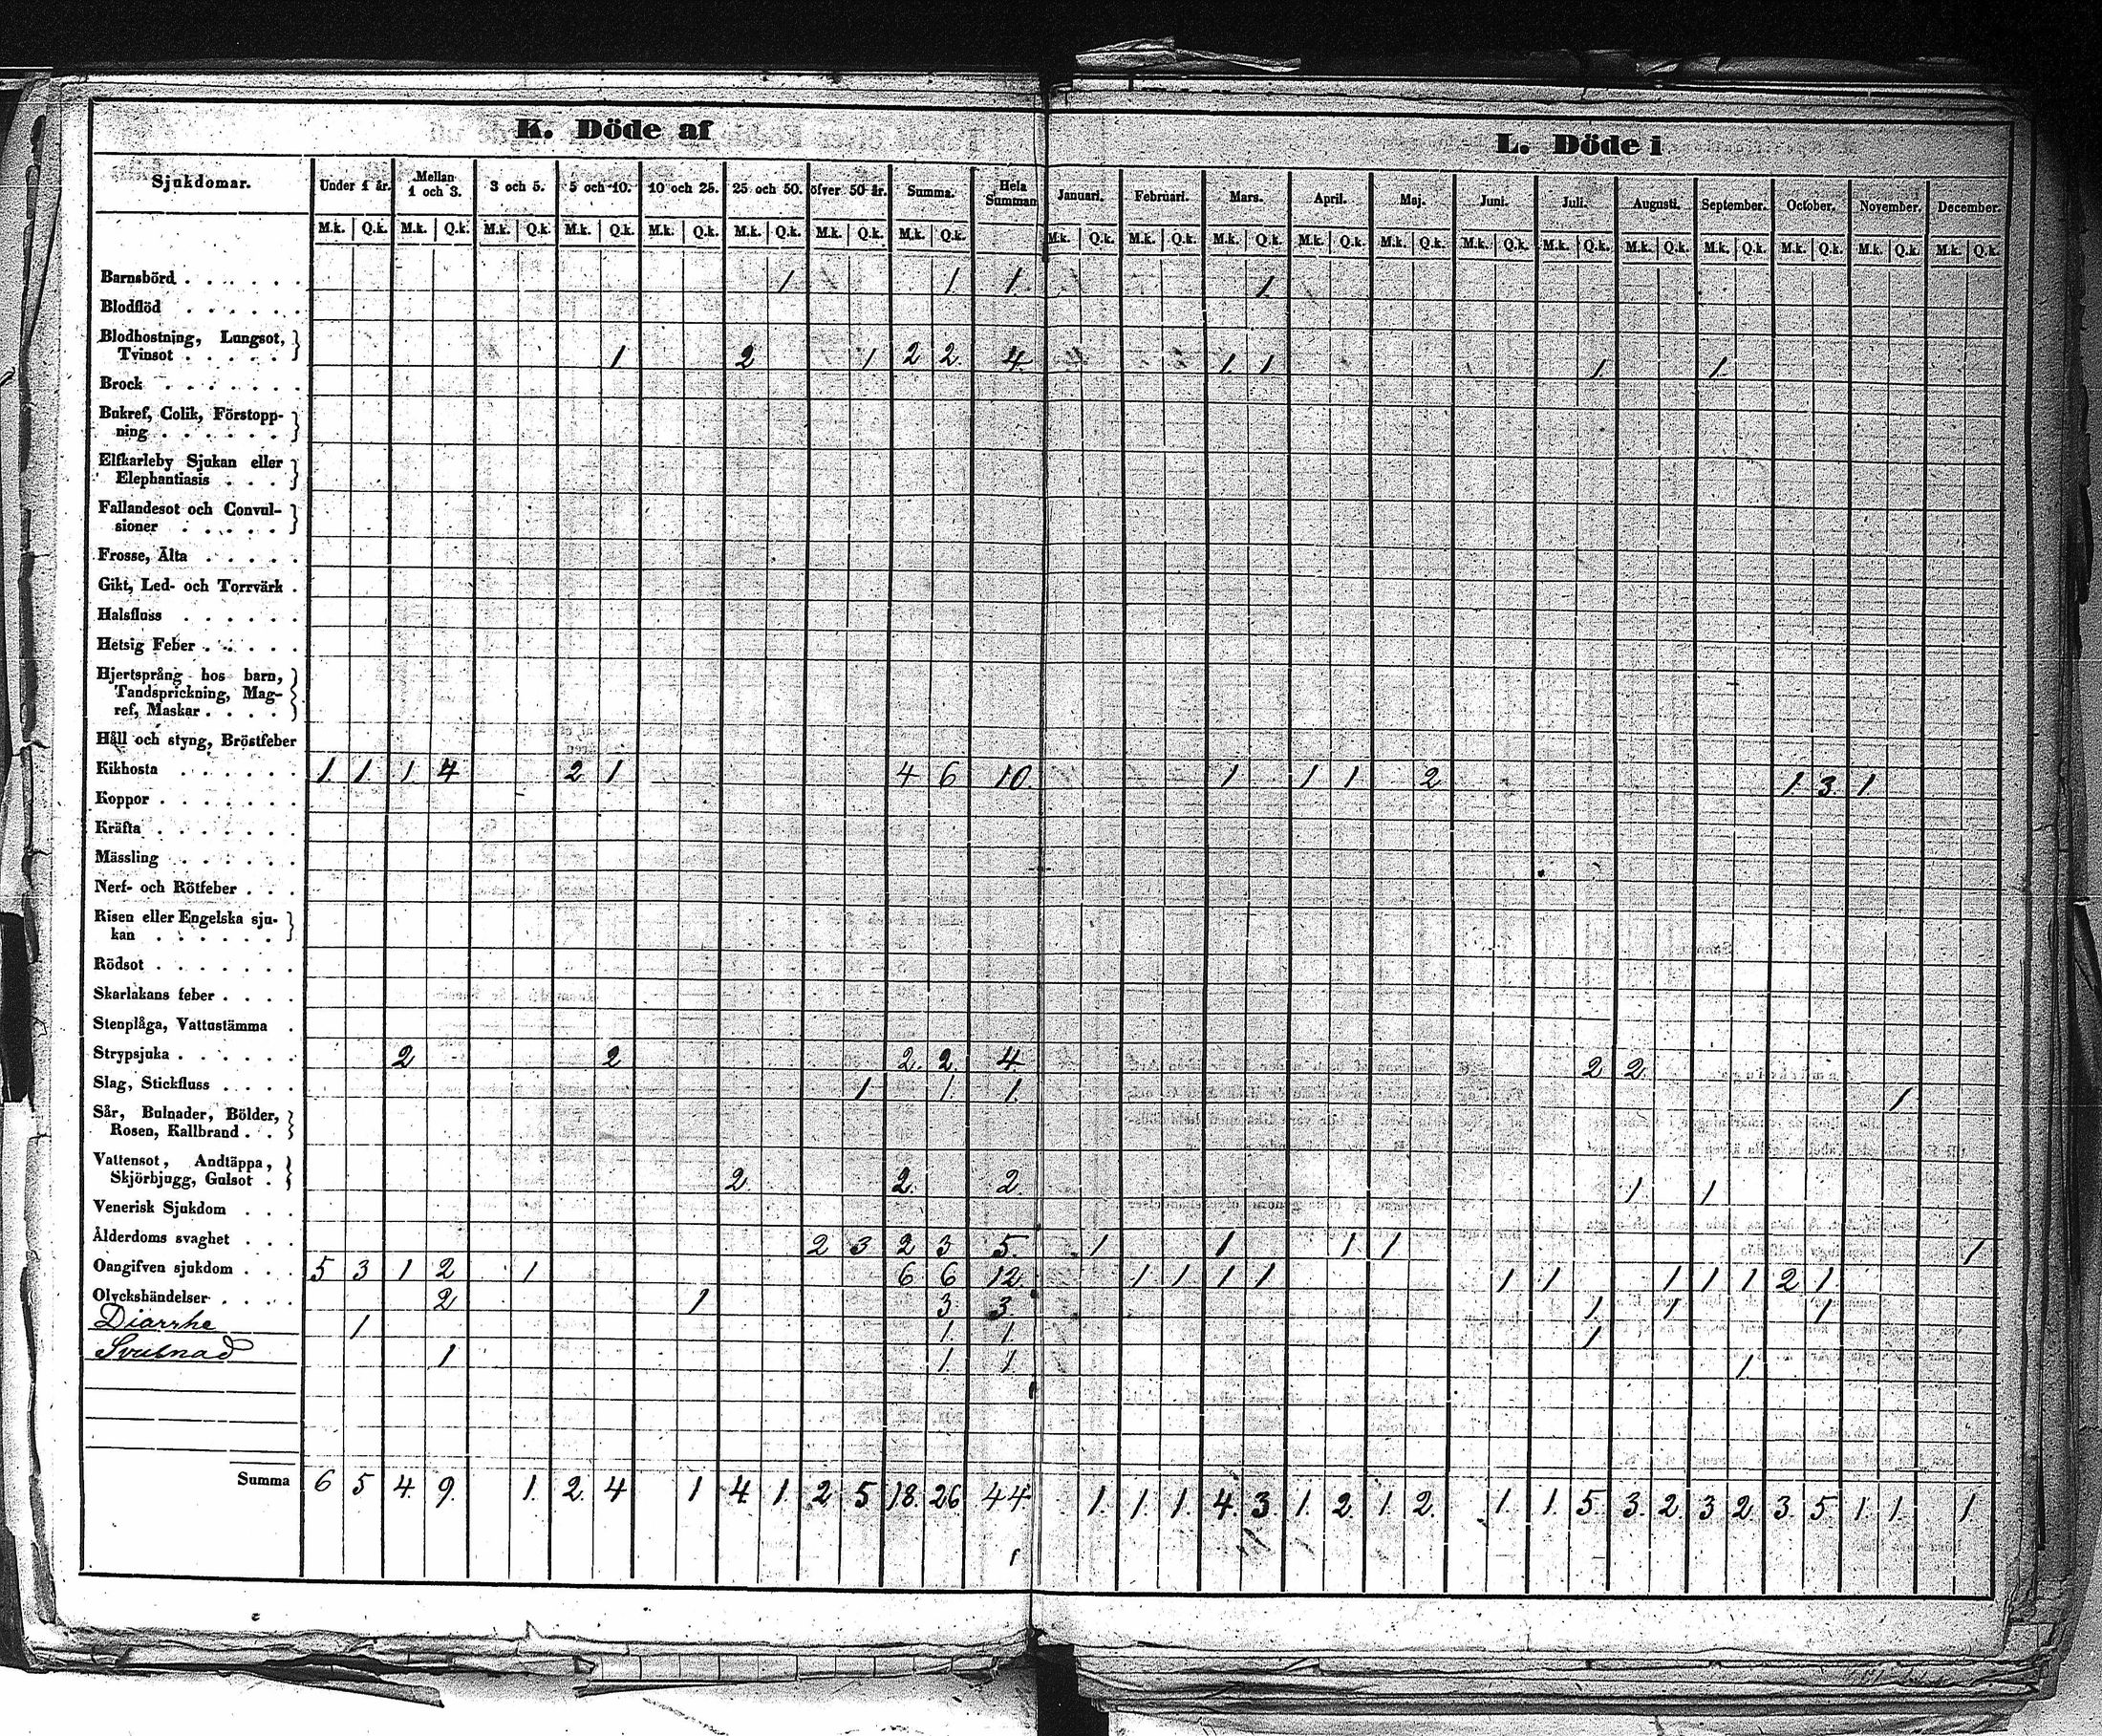 K. Döde af
L. Döde i
Sjukdomar. Under 1 år. Mellan 1 och 3. 3 och 5. 5 och 10. 10 och 25. 25 och 50. öfver 50 år. Summa. Hela Summan Januari. Februari. Mars. April. Maj. Juni. Juli. Augusti. September. October. November. December.
M.k. Q.k. M.k. Q.k. M.k. Q.k. M.k. Q.k. M.k. Q.k. M.k. Q.k. M.k. Q.k. M.k. Q.k. M.k. Q.k. M.k. Q.k. M.k. Q.k. M.k. Q.k. M.k. Q.k. M.k. Q.k. M.k. Q.k. M.k. Q.k. M.k. Q.k. M.k. Q.k. M.k. Q.k. M.k. Q.k.
Barnsbörd 1 1 1. 1.
Blodflöd
Blodhostning, Lungsot,
Tvinsot 1 2 1 2 2. 4. 1. 1 1. 1.
Brock
Bukref, Colik, Förstopp-
ning
Elfkarleby Sjukan eller
Elephantiasis
Fallandesot och Convul-
sioner
Frosse, Älta
Gikt, Led- och Torrvärk
Halsfluss
Hetsig Feber
Hjertsprång hos barn,
Tandsprickning, Mag-
ref, Maskar
Håll och styng, Bröstfeber
Kikhosta 1. 1 1. 4 2 1 4 6 10. 1 1 1 2 1. 3. 1.
Koppor
Kräfta
Mässling
Nerf- och Rötfeber
Risen eller Engelska sju-
kan
Rödsot
Skarlakans feber
Stenplåga, Vattustämma
Strypsjuka 2 2 2. 2. 4 2 2.
Slag, Stickfluss 1 1. 1. 1
Sår, Bulnader, Bölder,
Rosen, Kallbrand
Vattensot, Andtäppa,
Skjörbjugg, Gulsot 2. 2. 2. 1 1
Venerisk Sjukdom
Ålderdoms svaghet 2 3 2 3 5. 1 1 1 1 1
Oangifven sjukdom 5 3 1 2 1 6 6 12. 1 1 1 1 1 1 1 1 1 2 1
Olyckshändelser 2 1 3 3 1 1 1
Diarrhe 1 1. 1. 1
Svulnad 1 1. 1. 1
Summa 6 5 4. 9. 1. 2. 4 1 4. 1. 2 5 18. 26 44 1. 1. 1. 4. 3. 1. 2. 1. 2. 1. 1. 5. 3. 2. 3 2. 3. 5 1. 1. 1.